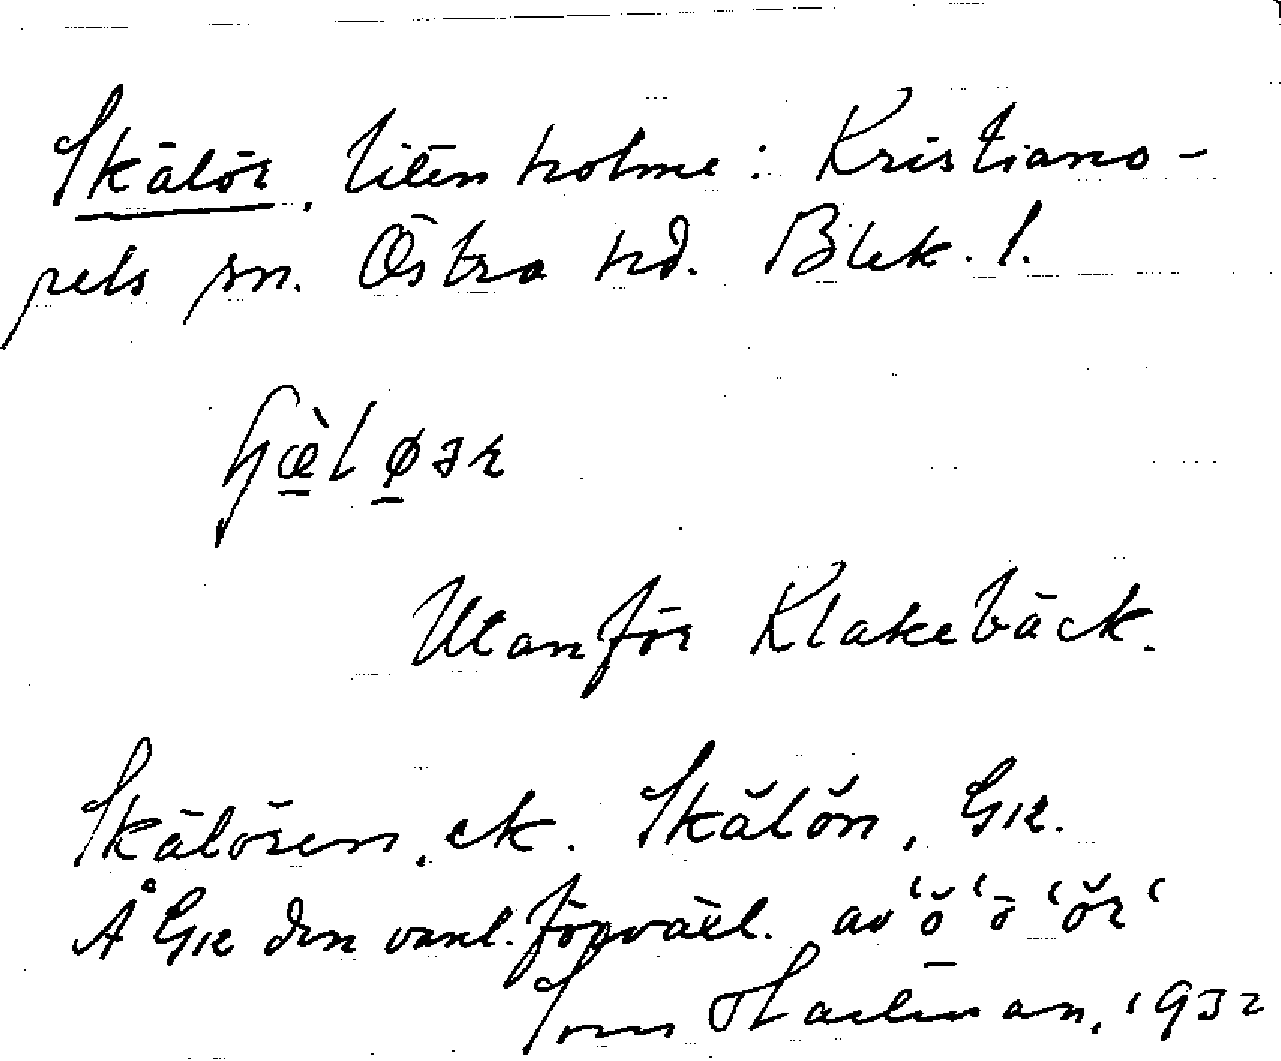 Skälör, liten holme: Kristiano-
pels sn. Östra hd. Blek. l.
Utanför Klakebäck.
Skälören, ek. Skälön, GK.
Å GK den vanl. förväxl. av 'ö' o 'ör'
Tom Hartman, 1932